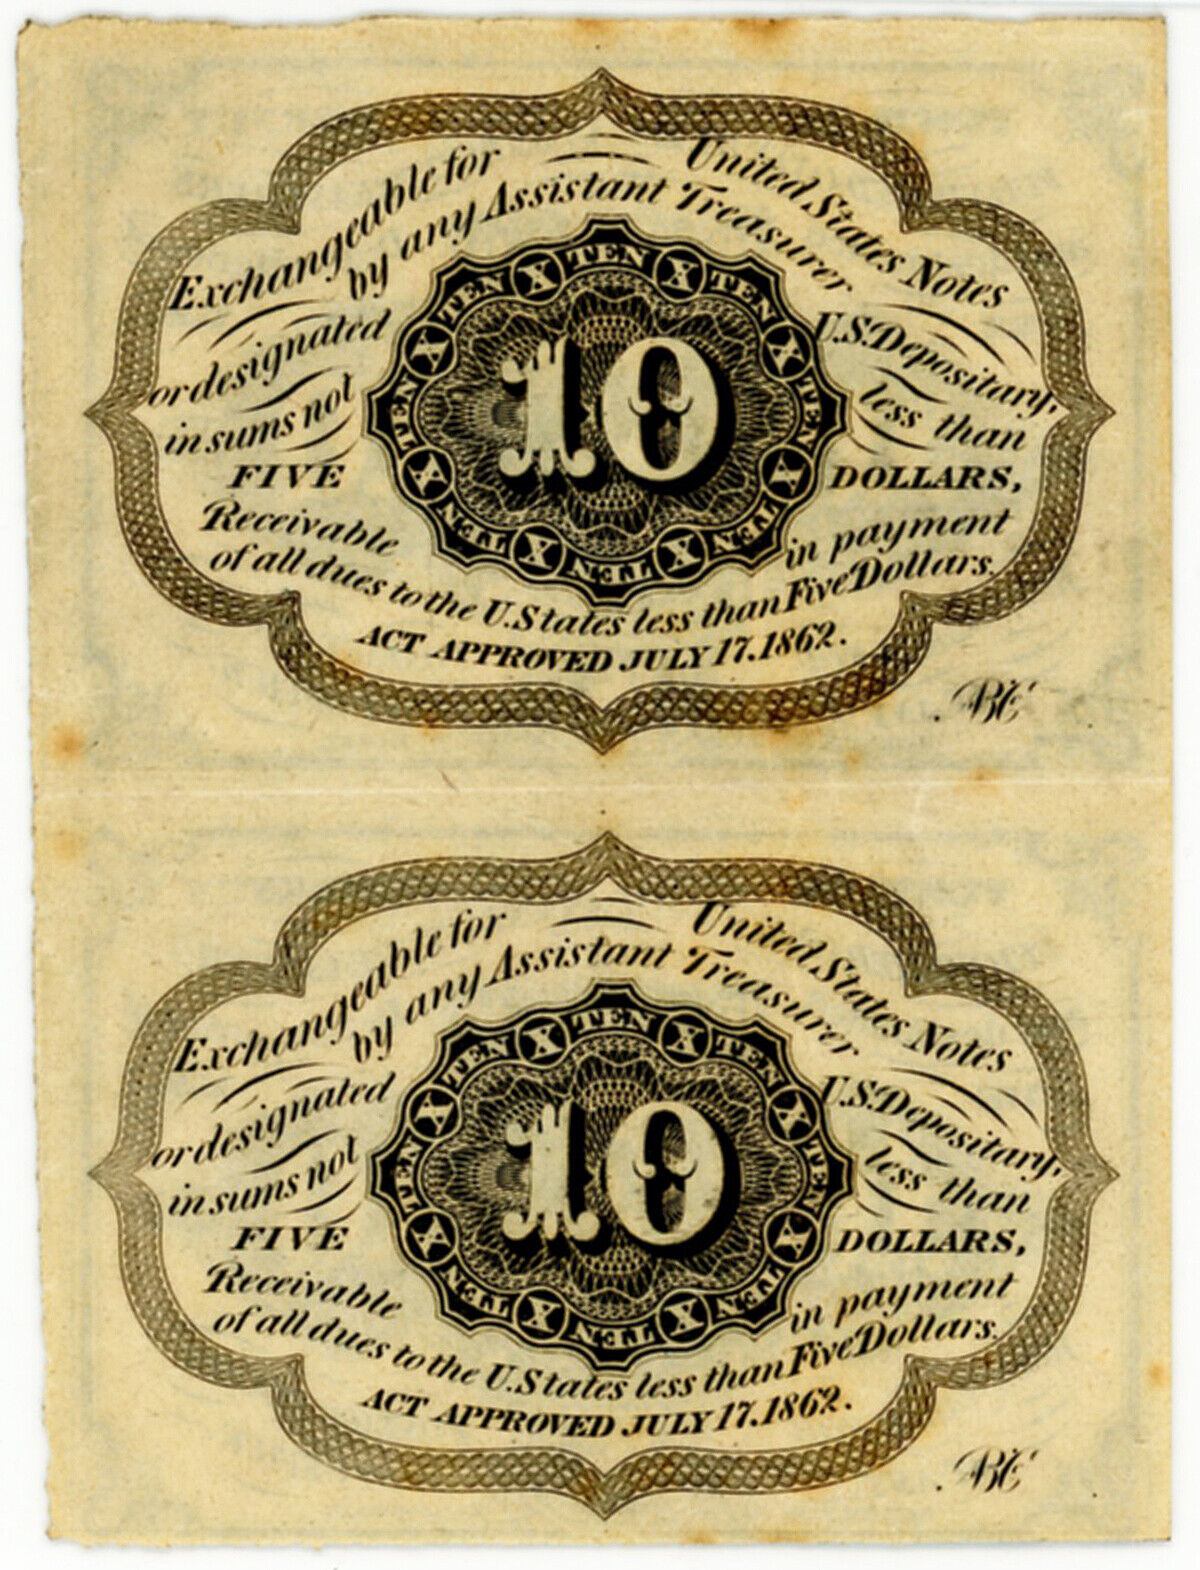 Exchangeable for United States Notes
by any Assistant Treasurer
or designated U.S. Depositary,
in sums not less than
FIVE DOLLARS,
Receivable in payment
of all dues to the U. States less than Five Dollars.
ACT APPROVED JULY 17. 1862.
TEN X TEN X TEN X TEN X TEN X TEN X TEN X TEN X
10
Exchangeable for United States Notes
by any Assistant Treasurer
or designated U.S. Depositary,
in sums not less than
FIVE DOLLARS,
Receivable in payment
of all dues to the U. States less than Five Dollars.
ACT APPROVED JULY 17. 1862.
TEN X TEN X TEN X TEN X TEN X TEN X TEN X TEN X
10